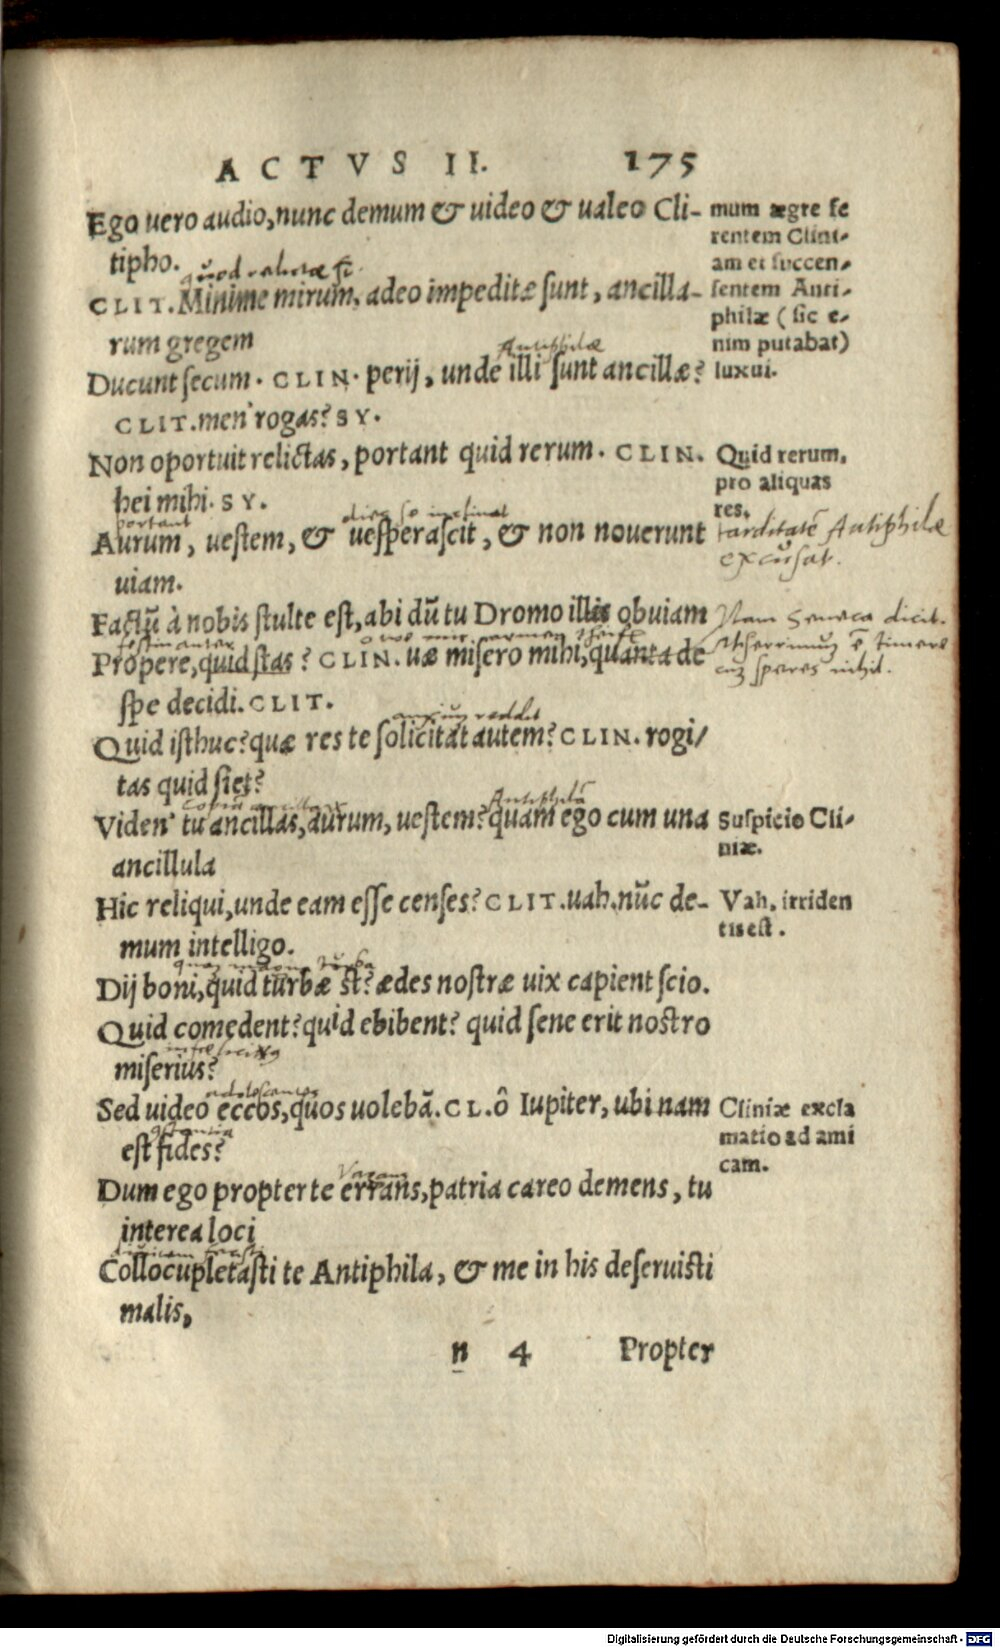 ACTVS II. 175
Ego uero audio, nunc demum & uideo & ualeo Cli-
tipho.
CLIT. Minime mirum, adeo impeditæ sunt, ancilla-
rum gregem
Antiphilæ
Ducunt secum. CLIN. perij, unde illi sunt ancillæ?
CLIT. men' rogas? SY.
Non oportuit relictas, portant quid rerum. CLIN.
hei mihi. SY.
portant
Aurum, uestem, & uesperascit, & non nouerunt
uiam.
Factū à nobis stulte est, abi dū tu Dromo illis obuiam
festinanter
Propere, quid stas? CLIN. uæ misero mihi, quanta de
spe decidi. CLIT.
anxiuȝ reddit
Quid isthuc? quæ res te solicitat autem? CLIN. rogi/
tas quid siet?
Antiphilā
Viden' tu ancillas, aurum, uestem? quam ego cum una
ancillula
Hic reliqui, unde eam esse censes? CLIT. uah. nūc de-
mum intelligo.
turba
Dij boni, quid turbæ st? ædes nostræ uix capient scio.
Quid comedent? quid ebibent? quid sene erit nostro
miserius?
Sed uideo eccos, quos uolebā. CL. ô Iupiter, ubi nam
est fides?
Dum ego propter te errans, patria careo demens, tu
interea loci
Collocupletasti te Antiphila, & me in his deseruisti
malis,
n 4 Propter
mum ægre fe
rentem Clini-
am et succen-
sentem Anti-
philæ (sic e-
nim putabat)
luxui.
Quid rerum,
pro aliquas
res.
tarditatē Antiphilæ
excusat.
Nam Seneca dicit.
Miserrimuȝ ē timere
cuȝ speres nihil.
Suspicio Cli-
niæ.
Vah, irriden
tis est.
Cliniæ excla
matio ad ami
cam.
Digitalisierung gefördert durch die Deutsche Forschungsgemeinschaft - DFG